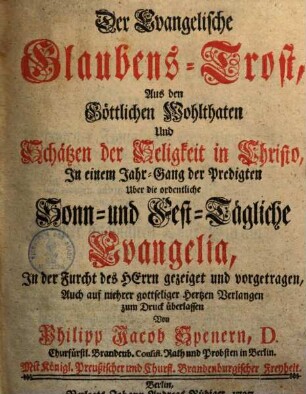 Der Evangelische
Glaubens-Trost,
Aus den
Göttlichen Wohlthaten
Und
Schätzen der Seligkeit in Christo,
In einem Jahr-Gang der Predigten
Uber die ordentliche
Sonn- und Fest-Tägliche
Evangelia,
In der Furcht des HErrn gezeiget und vorgetragen,
Auch auf mehrer gottseliger Hertzen Verlangen
zum Druck überlassen
Von
Philipp Jacob Spenern, D.
Churfürstl. Brandenb. Consist. Rath und Probsten in Berlin.
Mit Königl. Preußischer und Churfl. Brandenburgischer Freyheit.
Berlin,
Johann Andreas